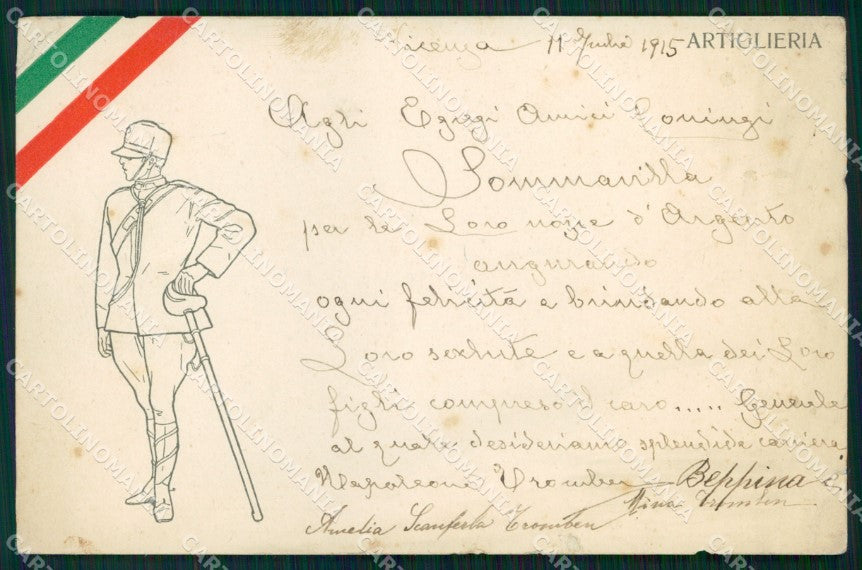 Vicenza 11 1915 ARTIGLIERIA
Agli Egregi Amici Coniugi
Sommavilla
per le Loro nozze d'Argento
augurando
ogni felicità e brindando alla
Loro salute e a quella dei Loro
figli compreso il caro ..... Generale
al quale desideriamo splendida carriera
Napoleone Tromben Beppina e
Nina Tromben
Amelia Tromben
CARTOLINOMANIA